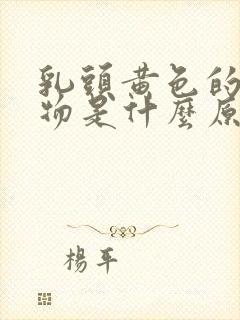 乳頭黃色的
物是什麼原
楊平